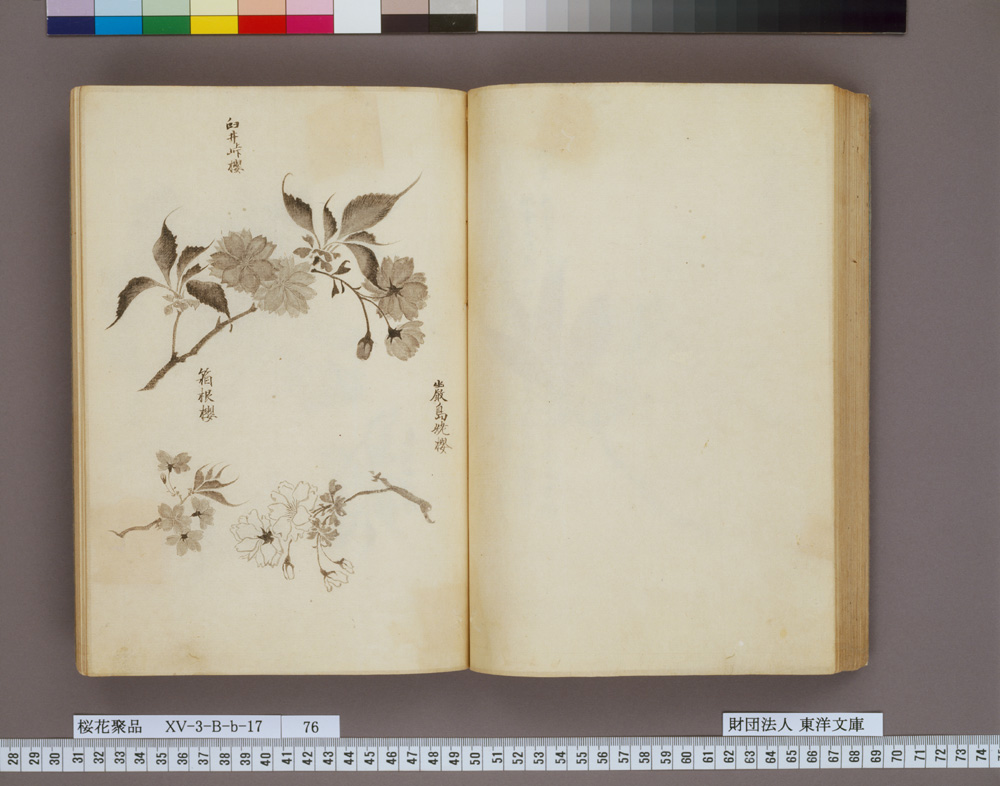 臼井峠櫻
巖島姥櫻
箱根櫻
桜花聚品 XV-3-B-b-17 76
財団法人 東洋文庫
28 29 30 31 32 33 34 35 36 37 38 39 40 41 42 43 44 45 46 47 48 49 50 51 52 53 54 55 56 57 58 59 60 61 62 63 64 65 66 67 68 69 70 71 72 73 74